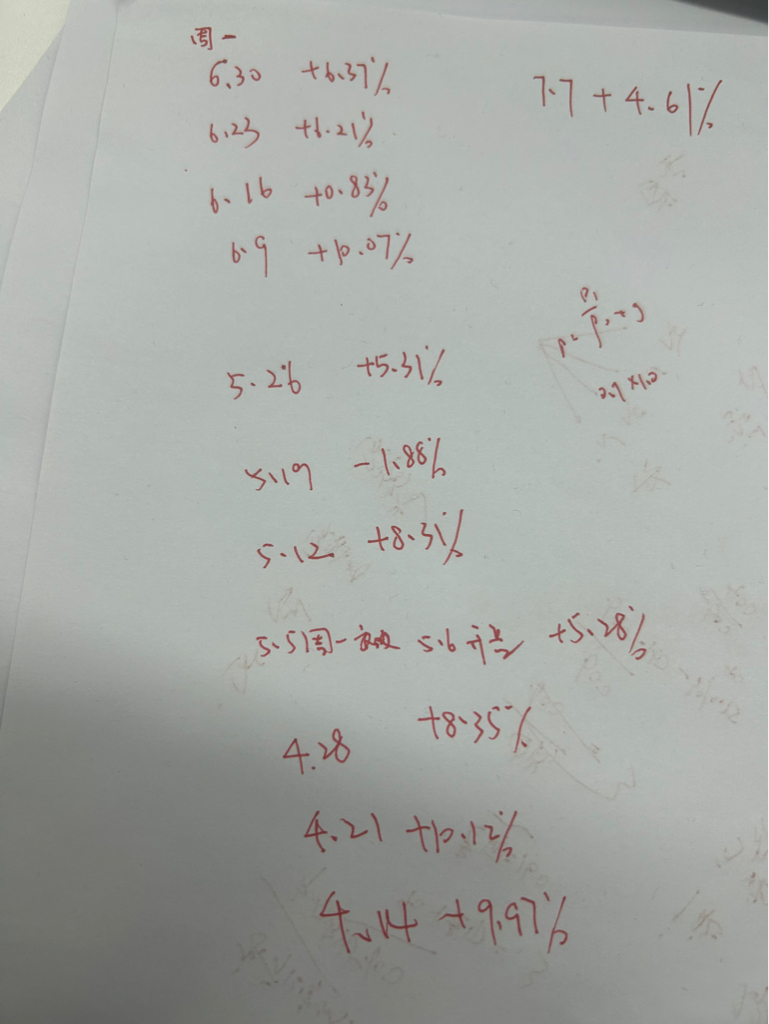 周一
6.30 +6.37%
7.7 +4.61%
6.23 +6.21%
6.16 +0.83%
6.9 +10.07%
5.26 +5.31%
5.19 -1.88%
5.12 +8.31%
5.5周一 5.6开盘 +5.28%
4.28 +8.35%
4.21 +10.12%
4.14 +9.97%